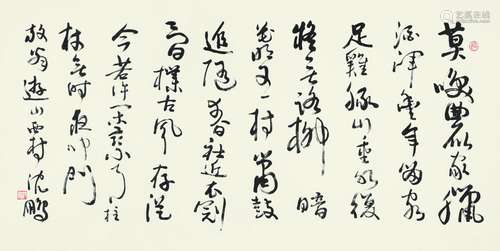 莫咲農家臘
酒渾豐年留客
足雞豚山重水復
疑無路柳暗
花明又一村簫鼓
追隨春社近衣冠
簡樸古風存從
今若許閒乘月拄
杖無時夜叩門
放翁遊山西村 沈鵬